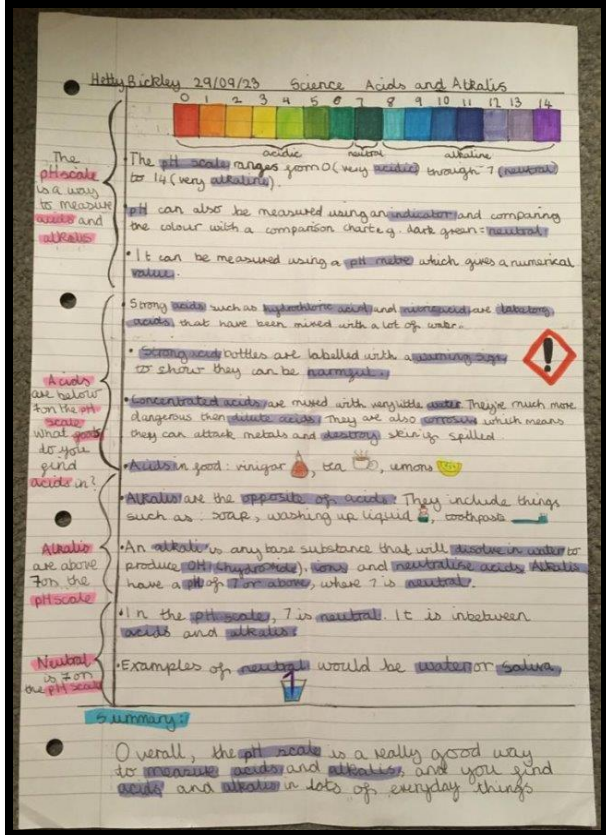 Hetty Bickley 29/09/23 Science Acids and Alkalis
0 1 2 3 4 5 6 7 8 9 10 11 12 13 14
acidic neutral alkaline
The
pH scale
is a way
to measure
acids and
alkalis
• The pH scale ranges from 0 (very acidic) through 7 (neutral)
to 14 (very alkaline).
• pH can also be measured using an indicator and comparing
the colour with a comparison chart e.g. dark green = neutral.
• It can be measured using a pH metre which gives a numerical
value.
Acids
are below
7 on the pH
scale
what foods
do you
find
acids in?
• Strong acids such as hydrochloric acid and nitric acid, are
acids, that have been mixed with a lot of water.
• Strong acid bottles are labelled with a warning sign
to show they can be harmful.
!
• Concentrated acids are mixed with very little water. They're much more
dangerous then dilute acids. They are also corrosive which means
they can attack metals and destroy skin if spilled.
• Acids in food: vinigar, tea, lemons
Alkalis
are above
7 on the
pH scale
• Alkalis are the opposite of acids. They include things
such as: soap, washing up liquid, toothpaste
• An alkali is any base substance that will dissolve in water to
produce OH (hydroxide), ions and neutralise acids. Alkalis
have a pH of 7 or above, where 7 is neutral.
Neutral
is 7 on
the pH scale
• In the pH scale, 7 is neutral. It is inbetween
acids and alkalis.
• Examples of neutral would be water or saliva
Summary:
Overall, the pH scale is a really good way
to measure acids and alkalis, and you find
acids and alkalis in lots of everyday things